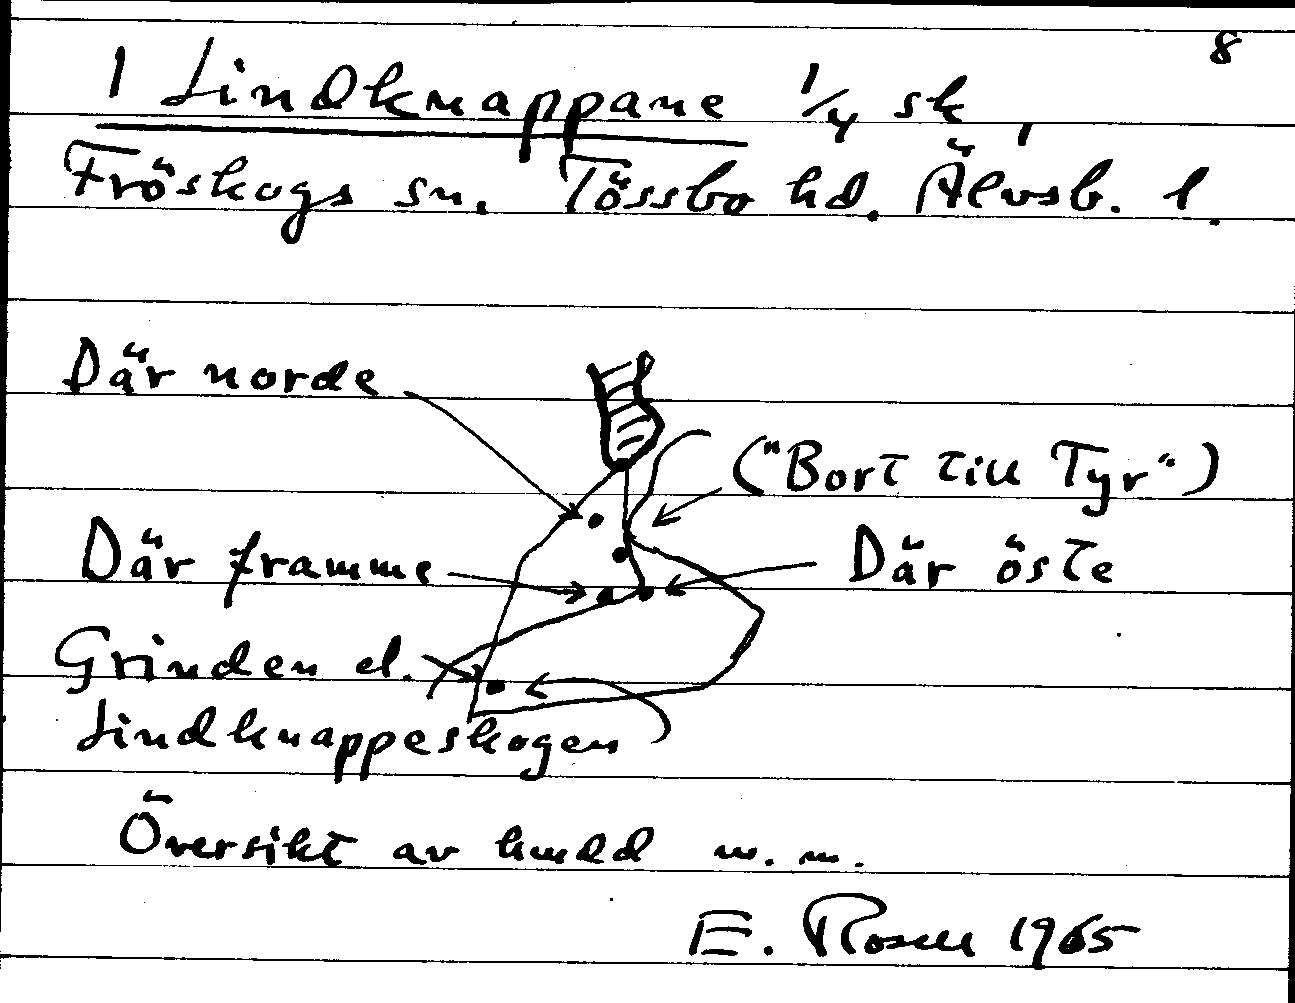 8
1 Lindknappane 1/4 sk
Fröskogs sn. Tössbo hd. Älvsb. l.
Där norde
("Bort till Tyr")
Där framme
Där öste
Grinden el.
Lindknappeskogen
Översikt av hmdd m.m.
E. Rosell 1965